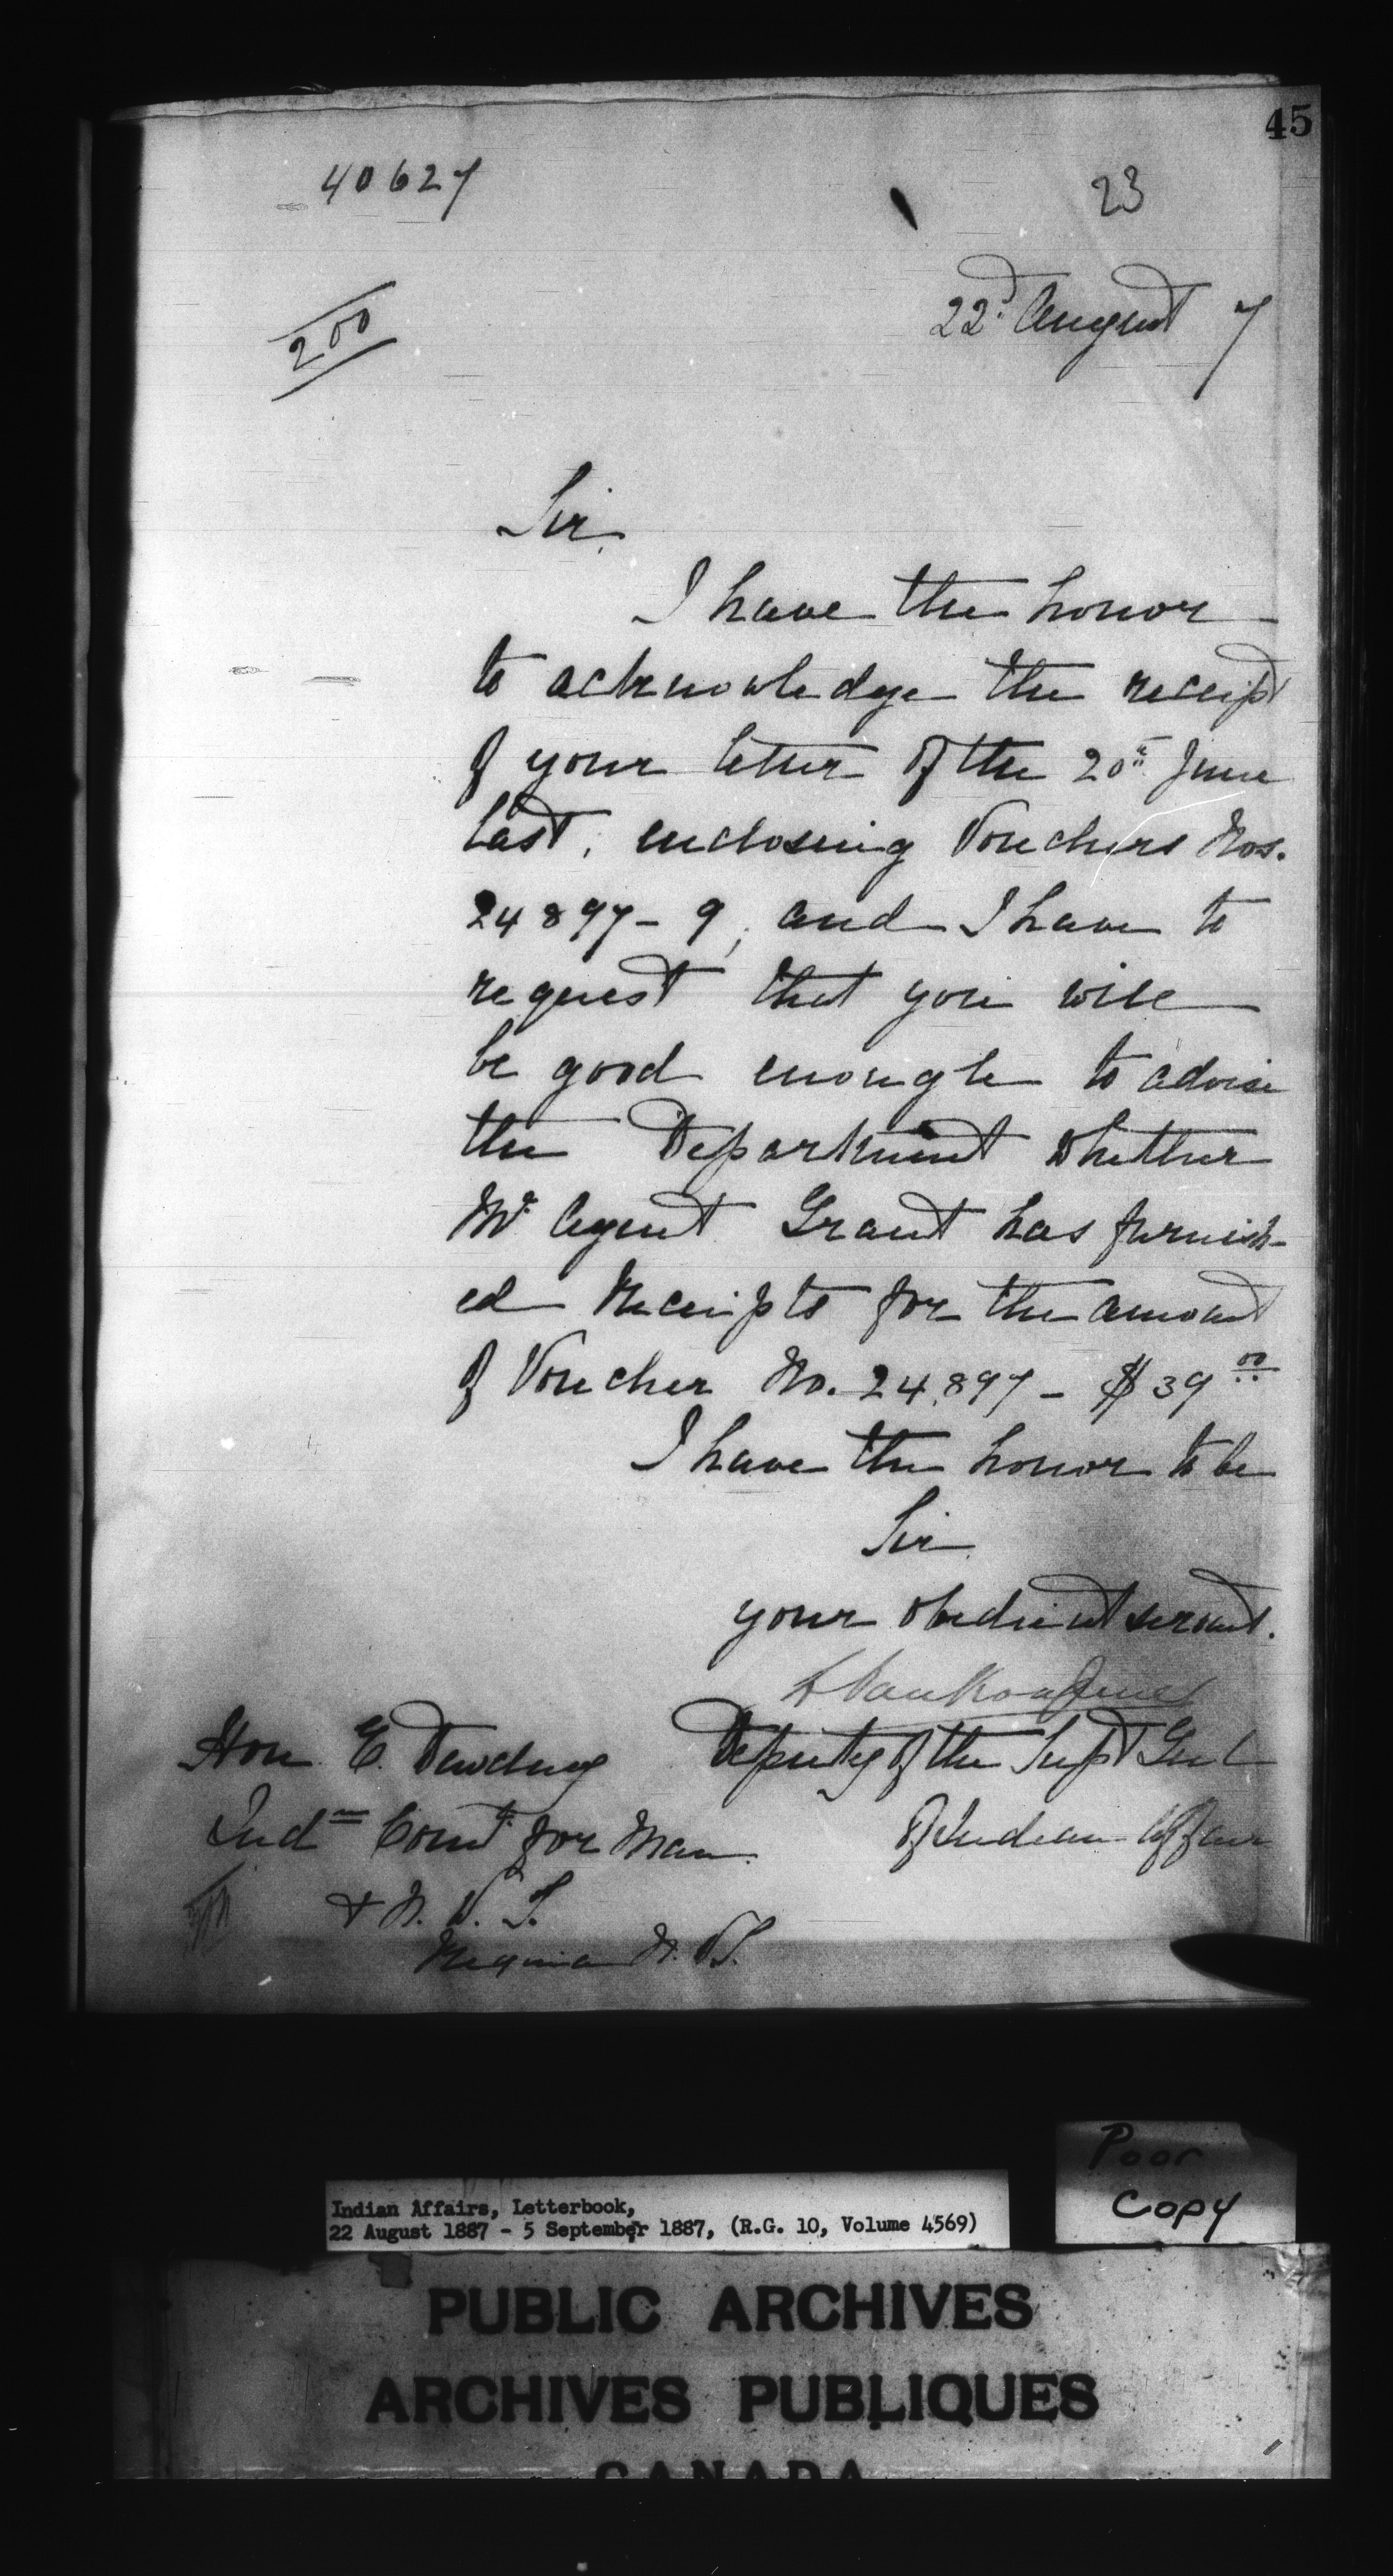 45
40627
23
200
22d August 7
Sir,
I have the honor
to acknowledge the receipt
of your letter of the 20th June
last, enclosing Vouchers Nos.
24897-9, and I have to
request that you will
be good enough to advise
the Department whether
Mr Agent Grant has furnish-
ed Receipts for the amount
of Voucher No. 24,897 - $39.00
I have the honor to be
Sir
your obedient servant.
L VanKoughnet
Hon E. Dewdney Deputy of the Supt Genl
Indn Comr for Man. of Indian Affairs
& N. W. T.
Regina N. W. T.
Poor
Copy
Indian Affairs, Letterbook,
22 August 1887 - 5 September 1887, (R.G. 10, Volume 4569)
PUBLIC ARCHIVES
ARCHIVES PUBLIQUES
CANADA